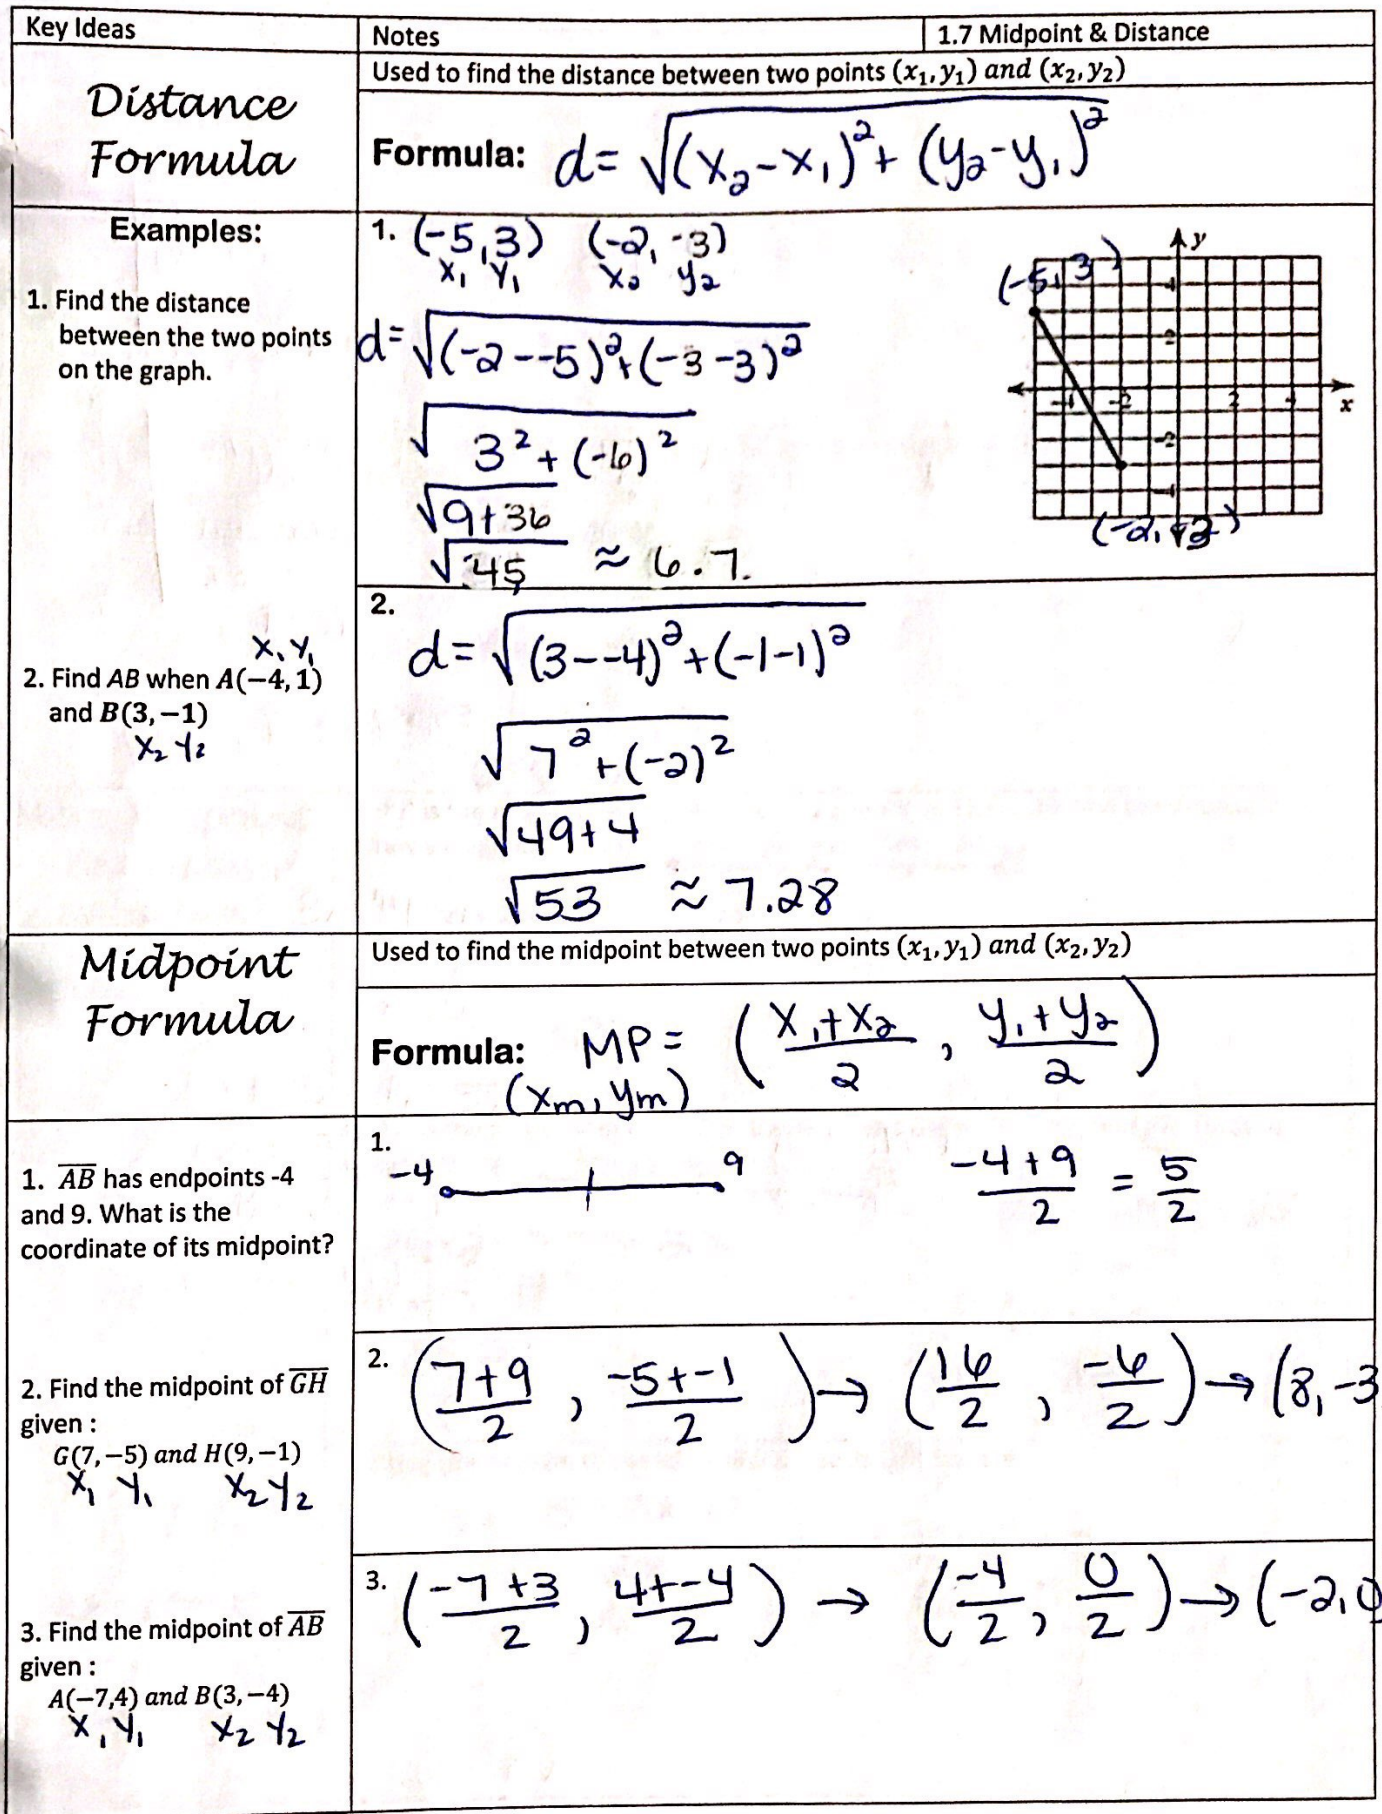 Key Ideas
Notes
1.7 Midpoint & Distance
Distance
Formula
Used to find the distance between two points (x₁, y₁) and (x₂, y₂)
Formula: d = √(x₂-x₁)² + (y₂-y₁)²
Examples:
1. Find the distance
between the two points
on the graph.
1. (-5,3) (-2,-3)
x₁ y₁ x₂ y₂
d = √(-2--5)²+(-3-3)²
√3²+(-6)²
√9+36
√45 ≈ 6.7.
(-5,3)
y
4
2
-4 -2 2 4 x
-2
-4
2. Find AB when A(−4, 1)
x₁ y₁
and B(3, −1)
x₂ y₂
2.
d = √(3--4)²+(-1-1)²
√7²+(-2)²
√49+4
√53 ≈ 7.28
Midpoint
Formula
Used to find the midpoint between two points (x₁, y₁) and (x₂, y₂)
Formula: MP = (x₁+x₂/2, y₁+y₂/2)
(xm, ym)
1. AB has endpoints -4
and 9. What is the
coordinate of its midpoint?
1.
-4 9
-4+9/2 = 5/2
2. Find the midpoint of GH
given :
G(7, −5) and H(9, −1)
x₁ y₁ x₂ y₂
2. (7+9/2, -5+-1/2) → (16/2, -6/2) → (8,-3
3. Find the midpoint of AB
given :
A(−7,4) and B(3, −4)
x₁ y₁ x₂ y₂
3. (-7+3/2, 4+-4/2) → (-4/2, 0/2) → (-2,0